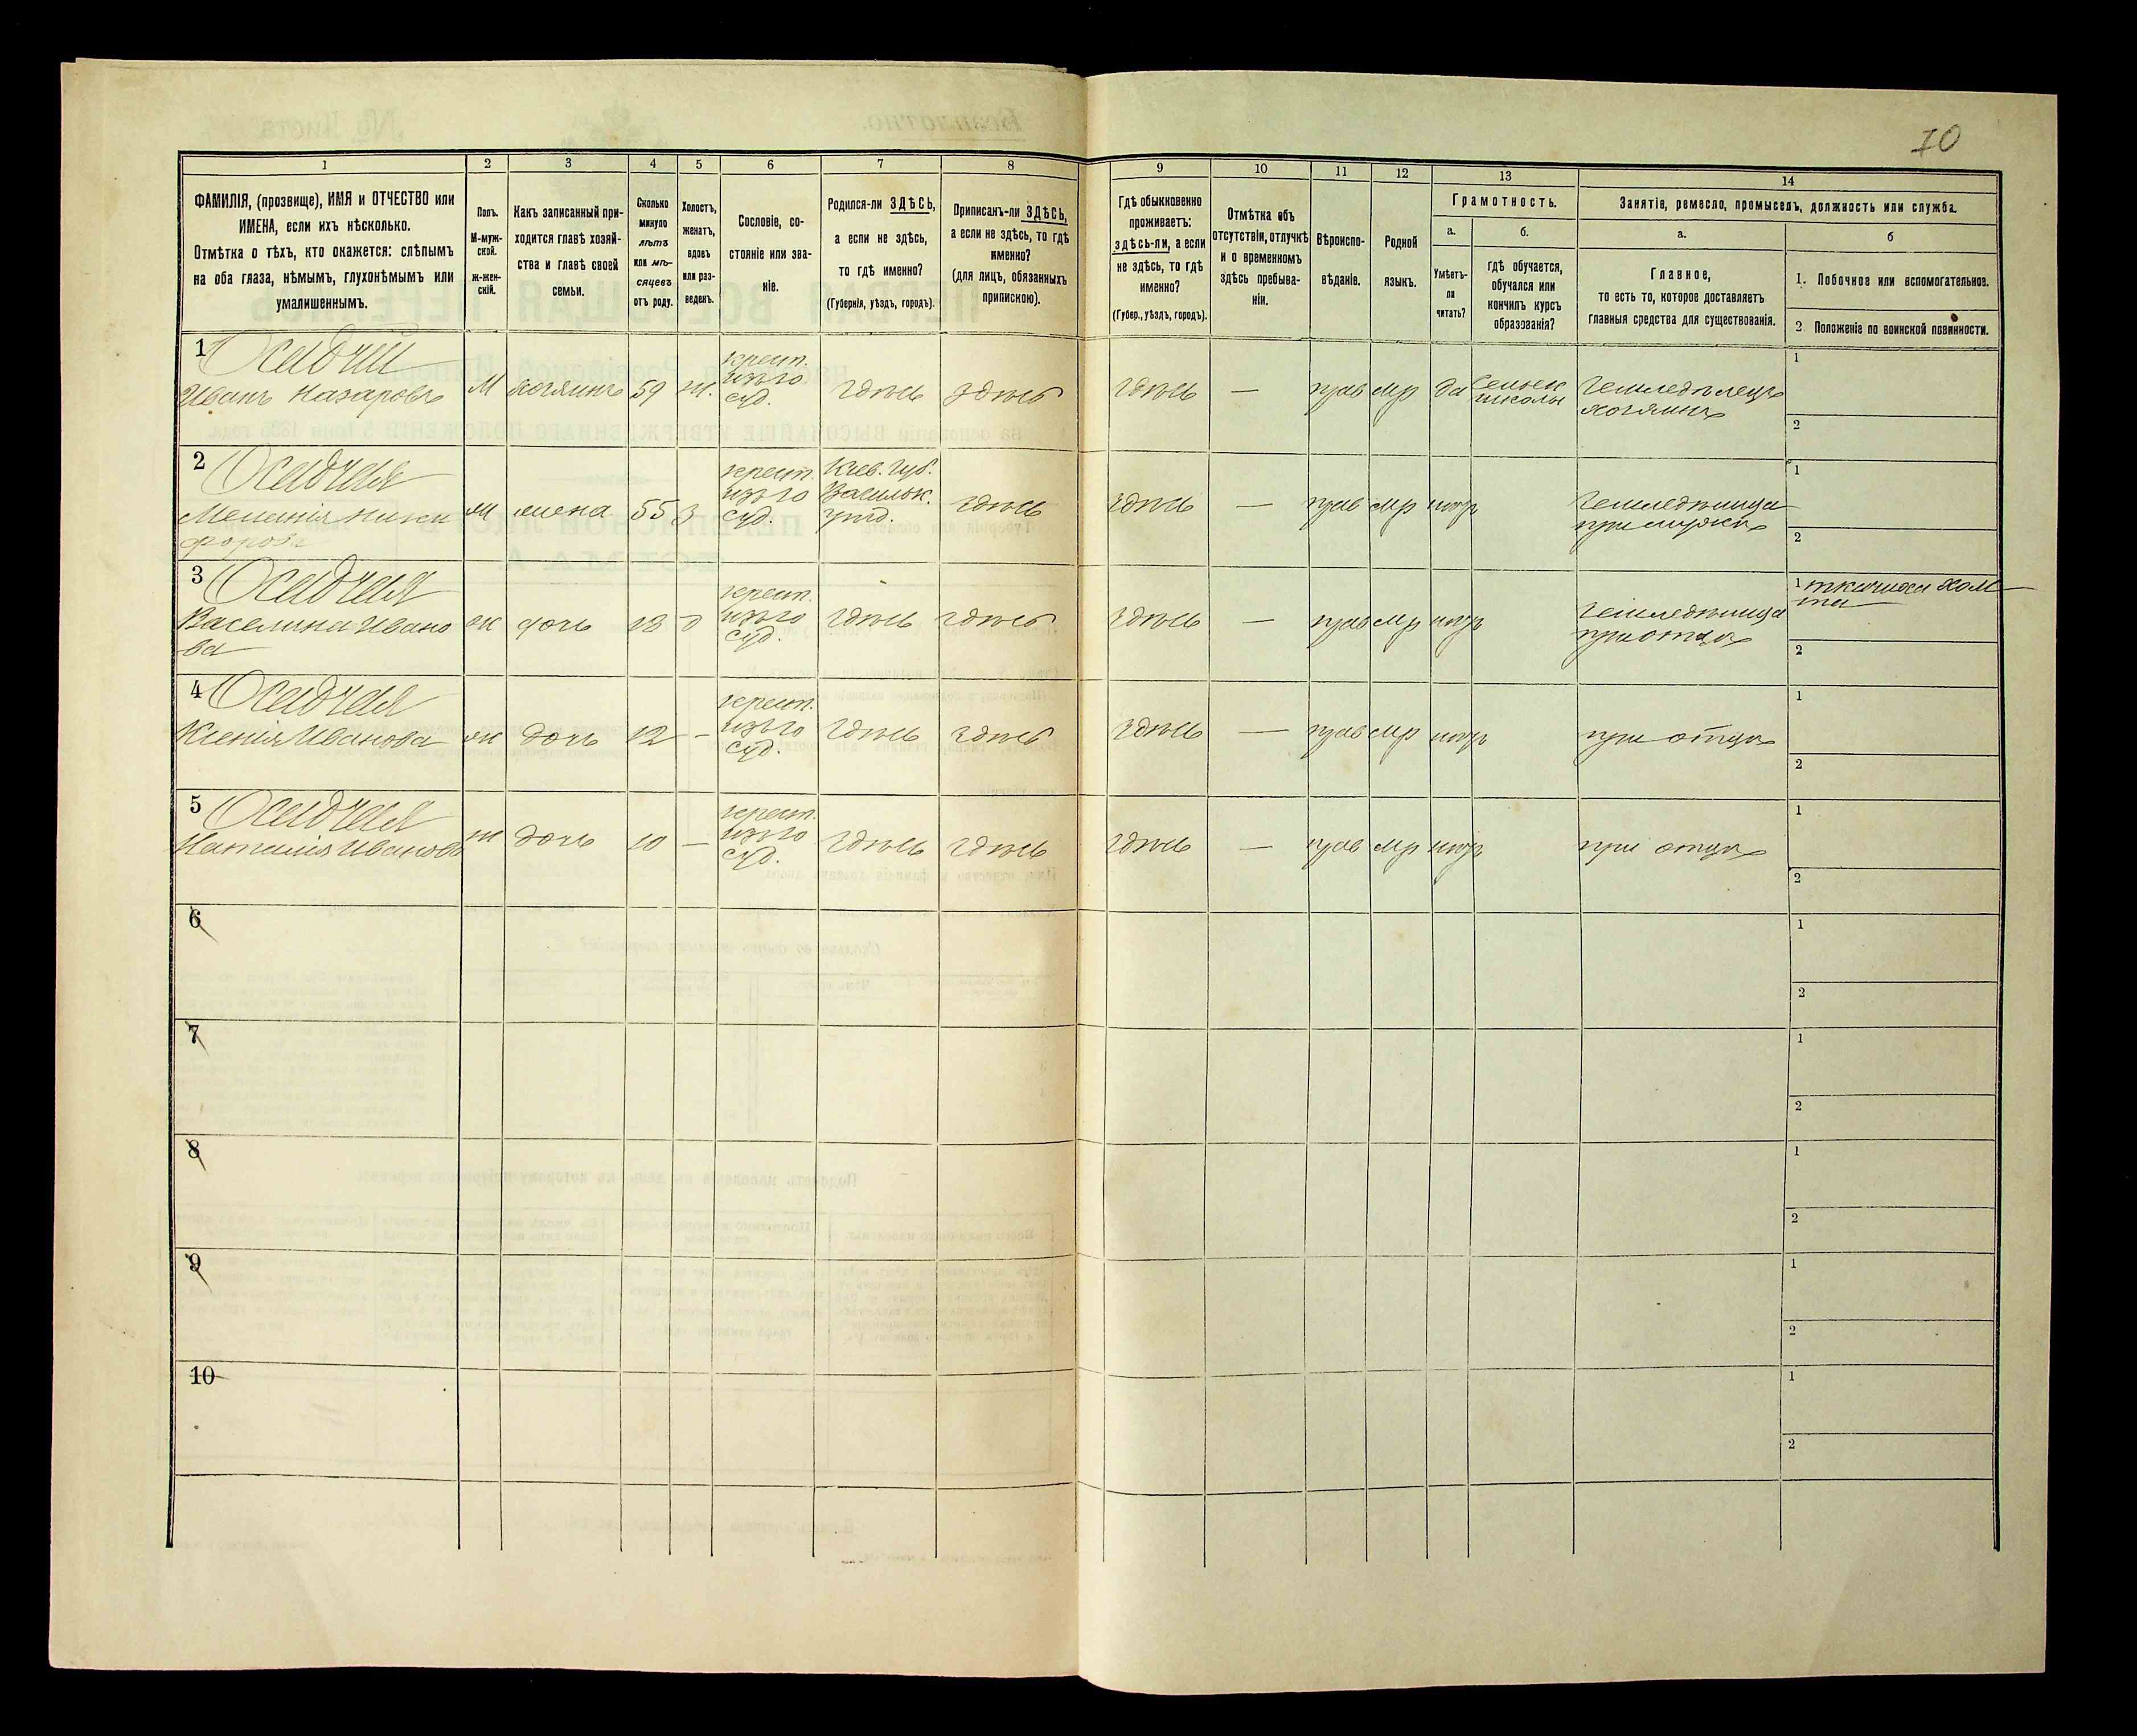 70
1
2
3
4
5
6
7
8
9
10
11
12
13
14
ФАМИЛІЯ, (прозвище), ИМЯ и ОТЧЕСТВО или
ИМЕНА, если ихъ нѣсколько.
Отмѣтка о тѣхъ, кто окажется: слѣпымъ
на оба глаза, нѣмымъ, глухонѣмымъ или
умалишеннымъ.
Полъ.
М-муж-
ской.
ж-жен-
скій.
Какъ записанный при-
ходится главѣ хозяй-
ства и главѣ своей
семьи.
Сколько
минуло
лѣтъ
или мѣ-
сяцевъ
отъ роду.
Холостъ,
женатъ,
вдовъ
или раз-
веденъ.
Сословіе, со-
стояніе или зва-
ніе.
Родился-ли ЗДѢСЬ,
а если не здѣсь,
то гдѣ именно?
(Губернія, уѣздъ, городъ).
Приписанъ-ли ЗДѢСЬ,
а если не здѣсь, то гдѣ
именно?
(для лицъ, обязанныхъ
припискою).
Гдѣ обыкновенно
проживаетъ:
здѣсь-ли, а если
не здѣсь, то гдѣ
именно?
(Губер., уѣздъ, городъ).
Отмѣтка объ
отсутствіи, отлучкѣ
и о временномъ
здѣсь пребыва-
ніи.
Вѣроиспо-
вѣданіе.
Родной
языкъ.
Грамотность.
а.
б.
Умѣетъ-
ли
читать?
гдѣ обучается,
обучался или
кончилъ курсъ
образованія?
Занятіе, ремесло, промыселъ, должность или служба.
а.
б
Главное,
то есть то, которое доставляетъ
главныя средства для существованія.
1. Побочное или вспомогательное.
2 Положеніе по воинской повинности.
1 Осадчій
Иванъ Назаровъ
М
хозяинъ
59
ж.
крест.
изъ го
суд.
здѣсь
здѣсь
здѣсь
—
прав
мр
да
сельск
школы
Земледѣлецъ
хозяинъ
1
2
2 Осадчая
Меланія Ники
форова
жена
55
З
крест.
изъ го
суд.
Кіев. Губ.
Васильк.
уѣзд.
здѣсь
здѣсь
—
прав
мр
нѣтъ
Земледѣлица
при мужѣ
1
2
3 Осадчая
Василина Ивано
ва
ж
дочь
18
д
крест.
изъ го
суд.
здѣсь
здѣсь
здѣсь
—
прав
мр
нѣтъ
Земледѣлица
при отцѣ
1 ткачиха хол
ста
2
4 Осадчая
Ксенія Иванова
ж
дочь
12
—
крест.
изъ го
суд.
здѣсь
здѣсь
здѣсь
—
прав
мр
нѣтъ
при отцѣ
1
2
5 Осадчая
Наталія Иванова
ж
дочь
10
—
крест.
изъ го
суд.
здѣсь
здѣсь
здѣсь
—
прав
мр
нѣтъ
при отцѣ
1
2
6
1
2
7
1
2
8
1
2
9
1
2
10
1
2